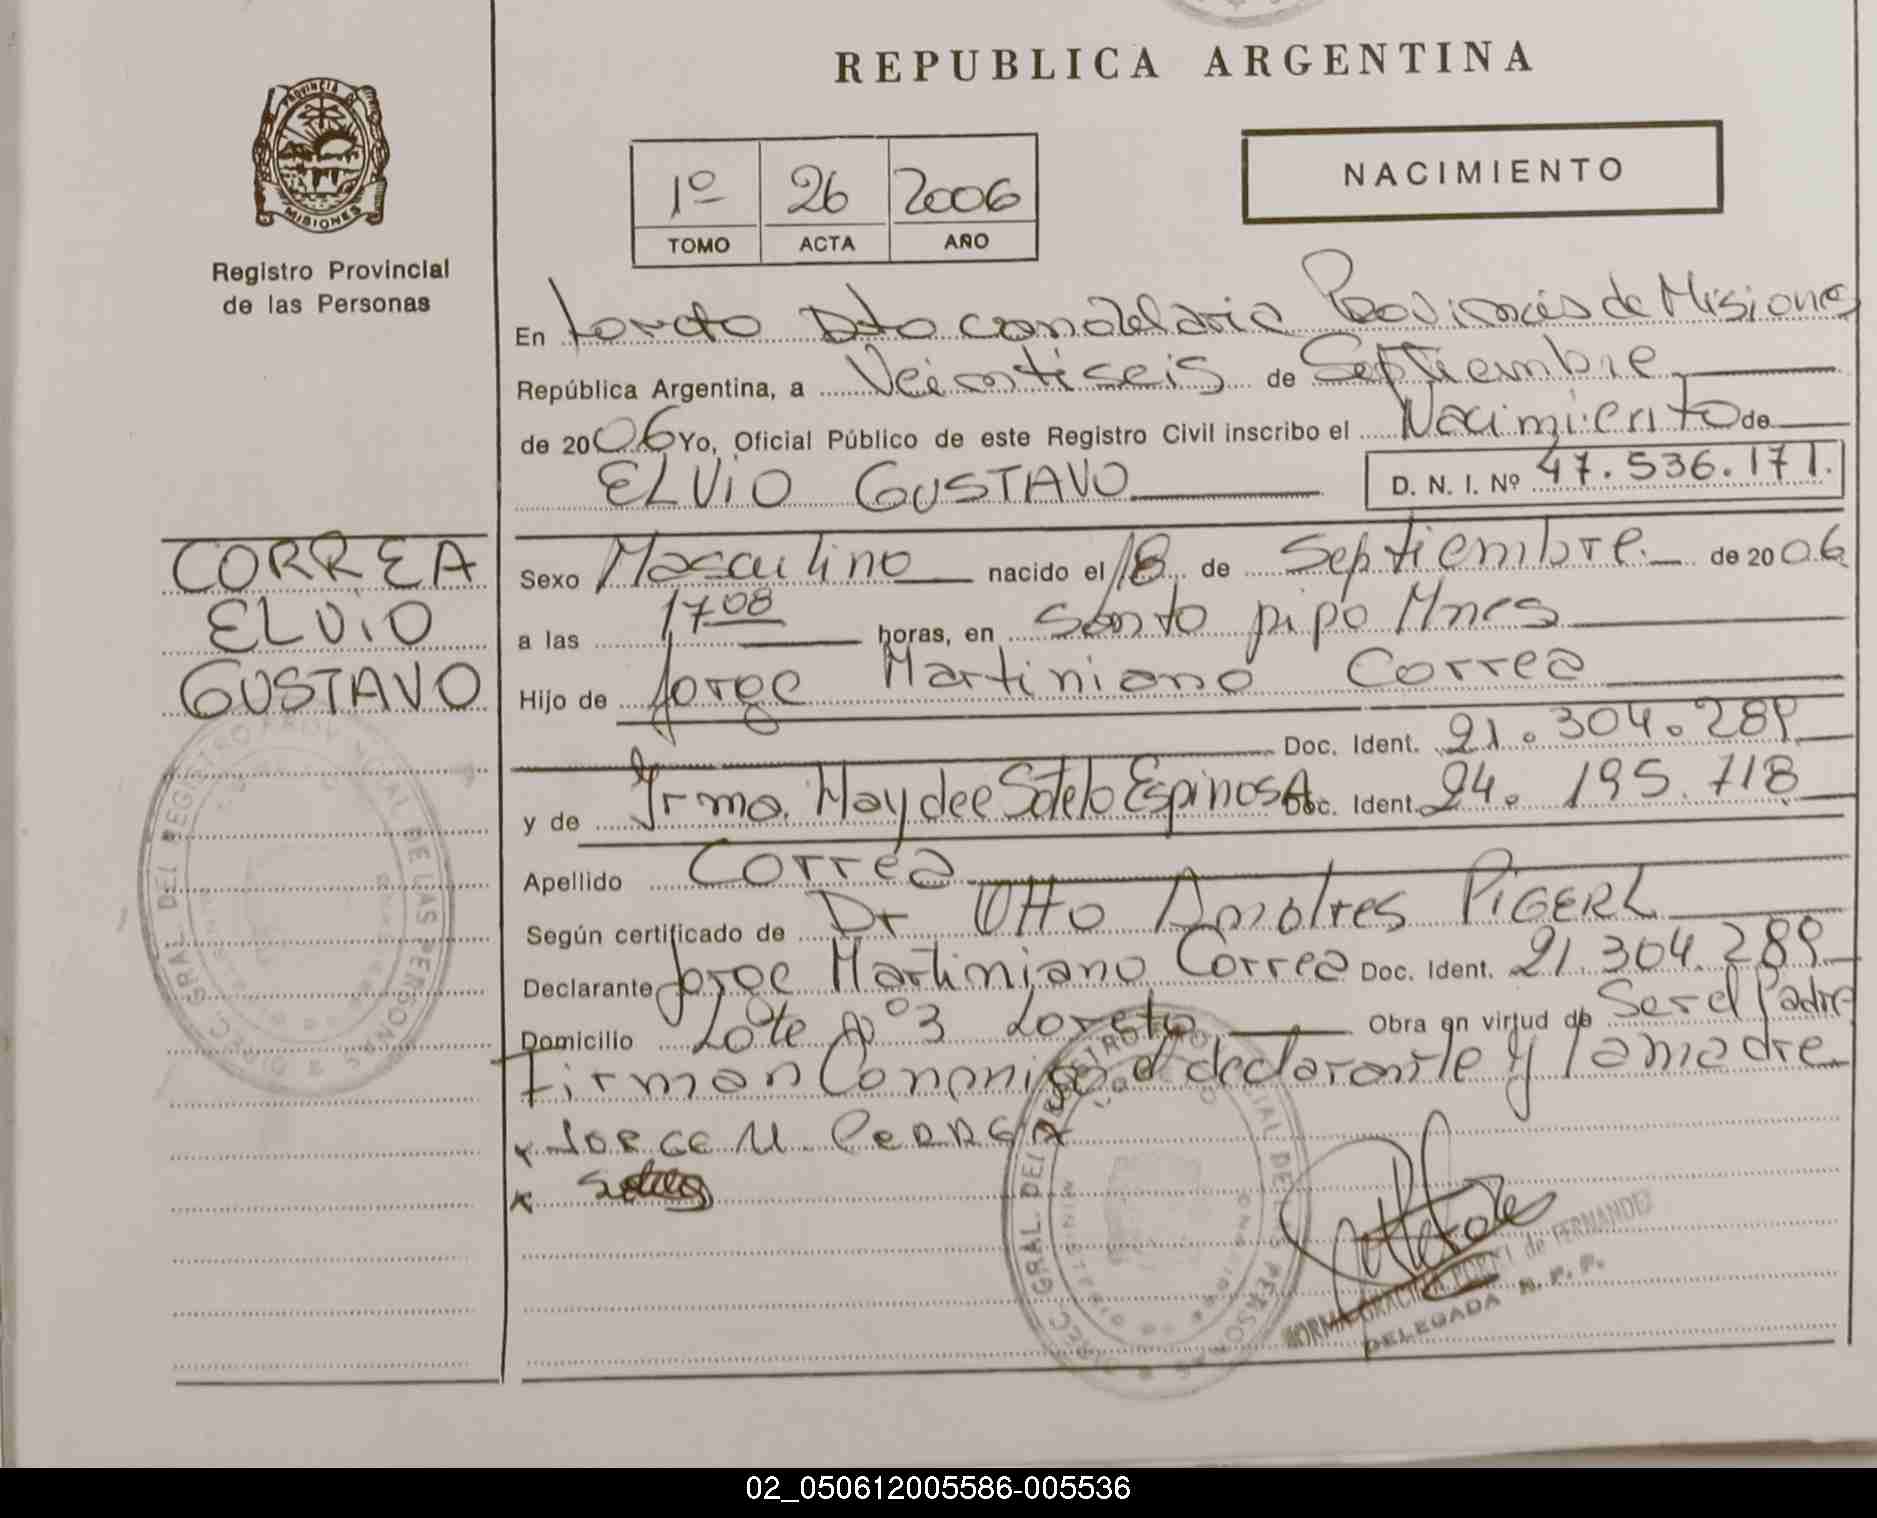 REPUBLICA ARGENTINA
PROVINCIA DE MISIONES
Registro Provincial
de las Personas
1º 26 2006
TOMO ACTA AÑO
NACIMIENTO
En Loreto Dto Candelaria Provincias de Misiones
República Argentina, a Veintiseis de Septiembre
de 2006 Yo, Oficial Público de este Registro Civil inscribo el Nacimiento de
ELViO GUSTAVO D. N. I. Nº 47.536.171.
CORREA
ELViO
GUSTAVO
Sexo Masculino nacido el 18 de Septiembre de 2006
a las 17 08 horas, en Santo pipó Mnes
Hijo de Jorge Martiniano Correa
Doc. Ident. 21.304.289
y de Irma Haydee Sotelo EspinosA Doc. Ident. 24.195.718
Apellido Correa
Según certificado de Dr Otto Andres PiGERL
Declarante Jorge Martiniano Correa Doc. Ident. 21.304.289
Domicilio Lote Nº 3 Loreto Obra en virtud de Ser el Padre
Firman Conmigo el declarante y la madre
x JORGE M. CORREA
x
DIREC. GRAL. DEL REGISTRO PROVINCIAL DE LAS PERSONAS
DIREC. GRAL. DEL REGISTRO PROVINCIAL DE LAS PERSONAS
LORETO
NORMA GRACIELA de FERNANDEZ
DELEGADA R. P. P.
02_050612005586-005536